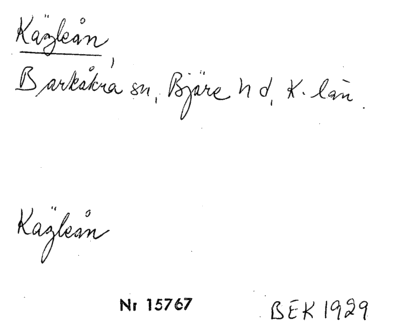 Käglean,
Barkåkra sn, Bjäre hd, K. län.
Kägleån
Nr 15767
BEK 1929